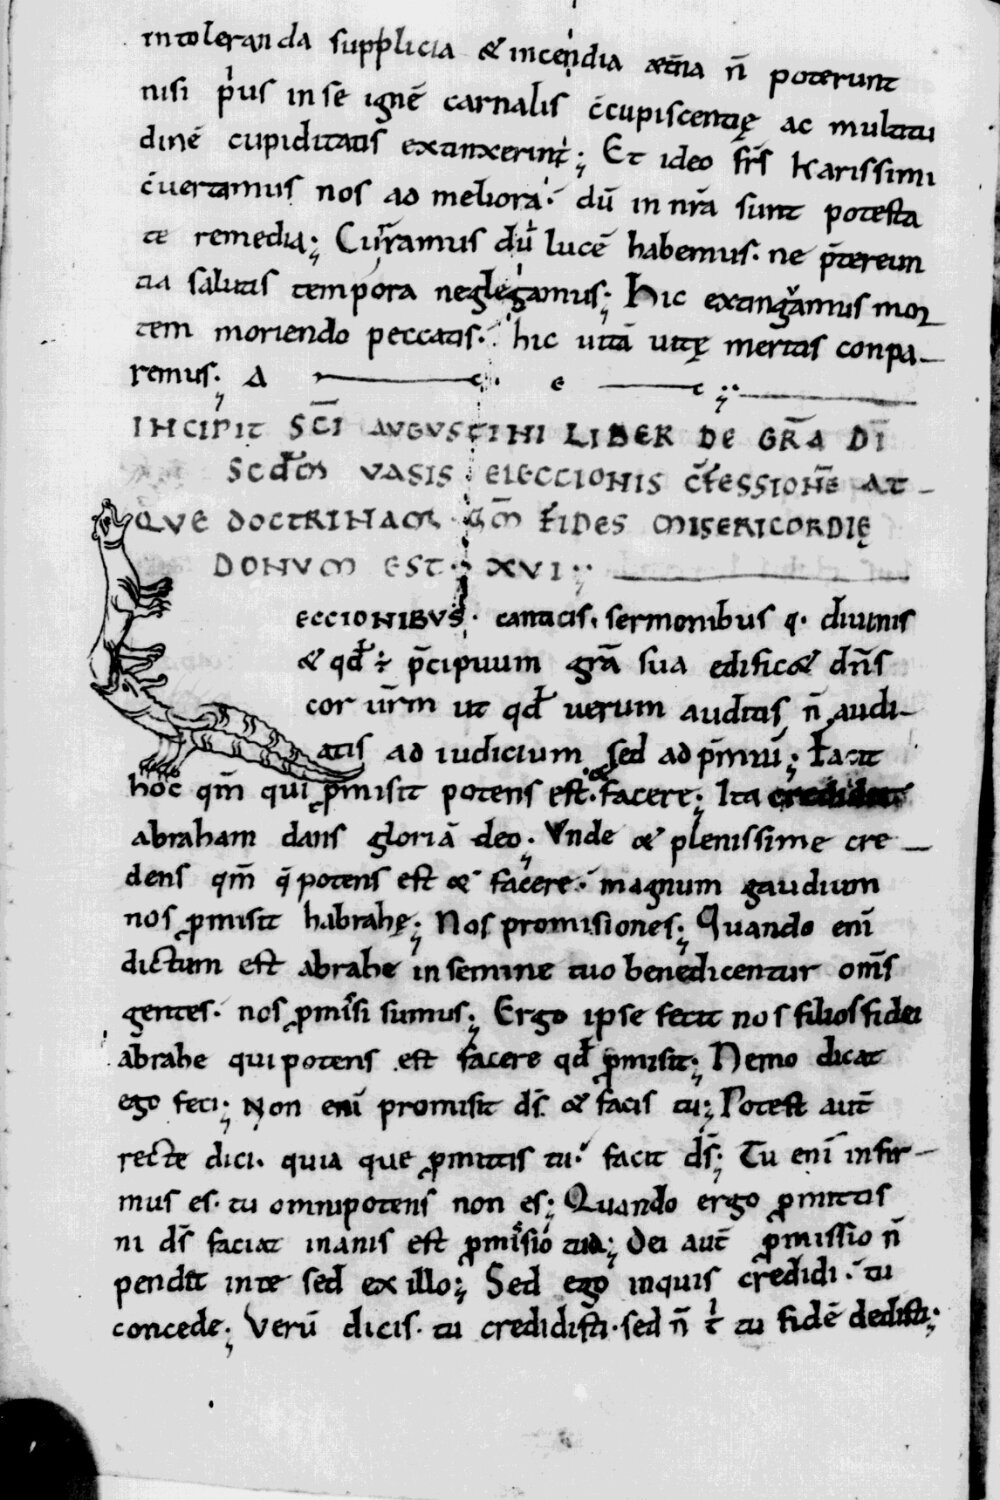 intoleranda supplicia & incendia ætn̄a n̄ poterunt
nisi pͥus in se ignē carnalis c̄cupiscentię ac multitu
dinē cupiditatis extinxerint; Et ideo fr̄s karissimi
c̄uertamus nos ad meliora. dū in nr̄a sunt potesta
te remedia; Curramus dū lucē habemus. ne p̄tereun
tia salutis tempora neglegamus; Hic extinguamus mor
tem moriendo peccatis. hic uitā uitę meritis conpa—
remus;
INCIPIT SC̄I AVGVSTINI LIBER DE GR̄A DĪ
SCDM VASIS ELECCIONIS C̄FESSIONĒ AT—
QVE DOCTRINAM QM̄ FIDES MISERICORDIĘ
DONVM EST. XVI
ECCIONIBVS. canticis. sermonibus q. diuinis
& qd̄ ÷ p̄cipuum grā sua edific& dn̄s
cor ur̄m ut qd̄ uerum auditis n̄ audi—
atis ad iudicium sed ad p̄miū; Facit
hoc qm̄ qui ꝓmisit potens est. & facere; Ita credidit
abraham dans gloriā deo; Vnde & plenissime cre—
dens qm̄ q̄ potens est & facere. magnum gaudium
nos ꝓmisit habrahę; Nos promisiones; Quando enī
dictum est abrahe in semine tuo benedicentur om̄s
gentes. nos ꝓmissi sumus; Ergo ipse fecit nos filios fidei
abrahe qui potens est facere qd̄ ꝓmisit; Nemo dicat
ego feci; Non enī promisit ds̄ & facis tu; Potest aut̄
recte dici. quia que ꝓmittis tu. facit ds̄; Tu enī infir—
mus es. tu omnipotens non es; Quando ergo ꝓmittis
ni ds̄ faciat inanis est ꝓmissio tua; Dei aut̄ ꝓmissio n̄
pendit in te sed ex illo; Sed ego inquis credidi. tu
concede; Verū dicis. tu credidisti. sed n̄ tͥ tu fidē dedisti;